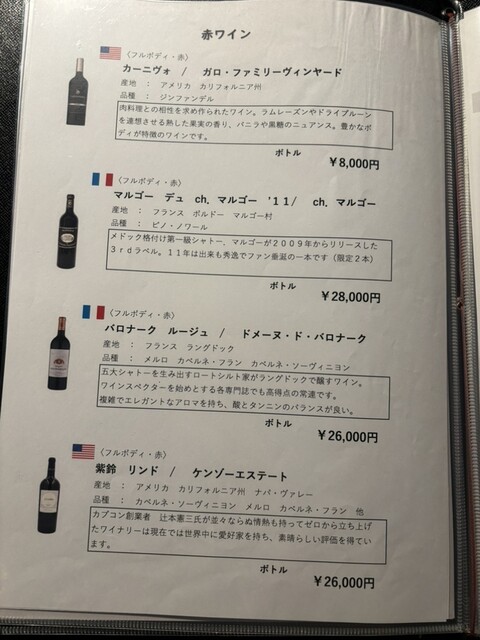 赤ワイン
〈フルボディ・赤〉
カーニヴォ / ガロ・ファミリーヴィンヤード
産地 : アメリカ カリフォルニア州
品種 : ジンファンデル
肉料理との相性を求め作られたワイン。ラムレーズンやドライプルーン
を連想させる熟した果実の香り、バニラや黒糖のニュアンス。豊かなボ
ディが特徴のワインです。
ボトル
￥8,000円
〈フルボディ・赤〉
マルゴー デュ ch. マルゴー '11/ ch. マルゴー
産地 : フランス ボルドー マルゴー村
品種 : ピノ・ノワール
メドック格付け第一級シャトー、マルゴーが２００９年からリリースした
３ｒｄラベル。１１年は出来も秀逸でファン垂涎の一本です（限定２本）
ボトル
￥28,000円
〈フルボディ・赤〉
バロナーク ルージュ / ドメーヌ・ド・バロナーク
産地 : フランス ラングドック
品種 : メルロ カベルネ・フラン カベルネ・ソーヴィニヨン
五大シャトーを生み出すロートシルト家がラングドックで醸すワイン。
ワインスペクターを始めとする各専門誌でも高得点の常連です。
複雑でエレガントなアロマを持ち、酸とタンニンのバランスが良い。
ボトル
￥26,000円
〈フルボディ・赤〉
紫鈴 リンド / ケンゾーエステート
産地 : アメリカ カリフォルニア州 ナパ・ヴァレー
品種 : カベルネ・ソーヴィニヨン メルロ カベルネ・フラン 他
カプコン創業者 辻本憲三氏が並々ならぬ情熱も持ってゼロから立ち上げ
たワイナリーは現在では世界中に愛好家を持ち、素晴らしい評価を得てい
ます。
ボトル
￥26,000円